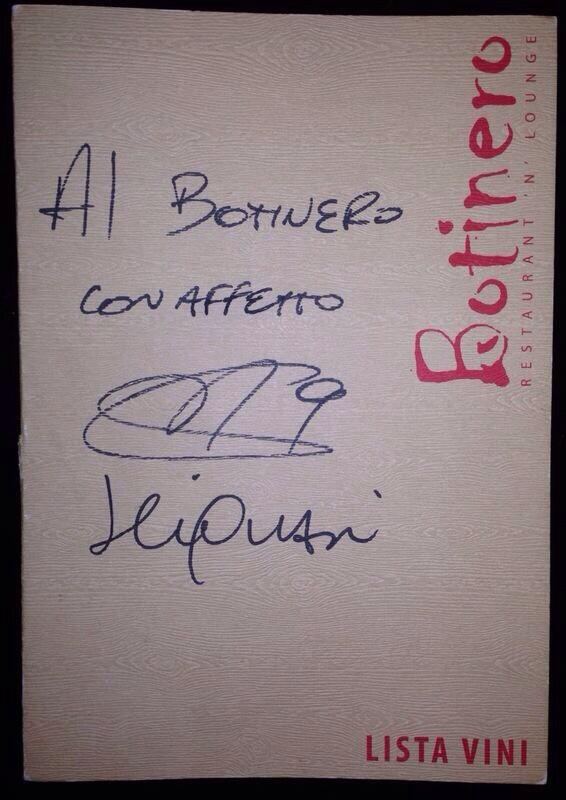 Al BOTINERO
CON AFFETTO
9
Botinero
RESTAURANT 'N' LOUNGE
LISTA VINI